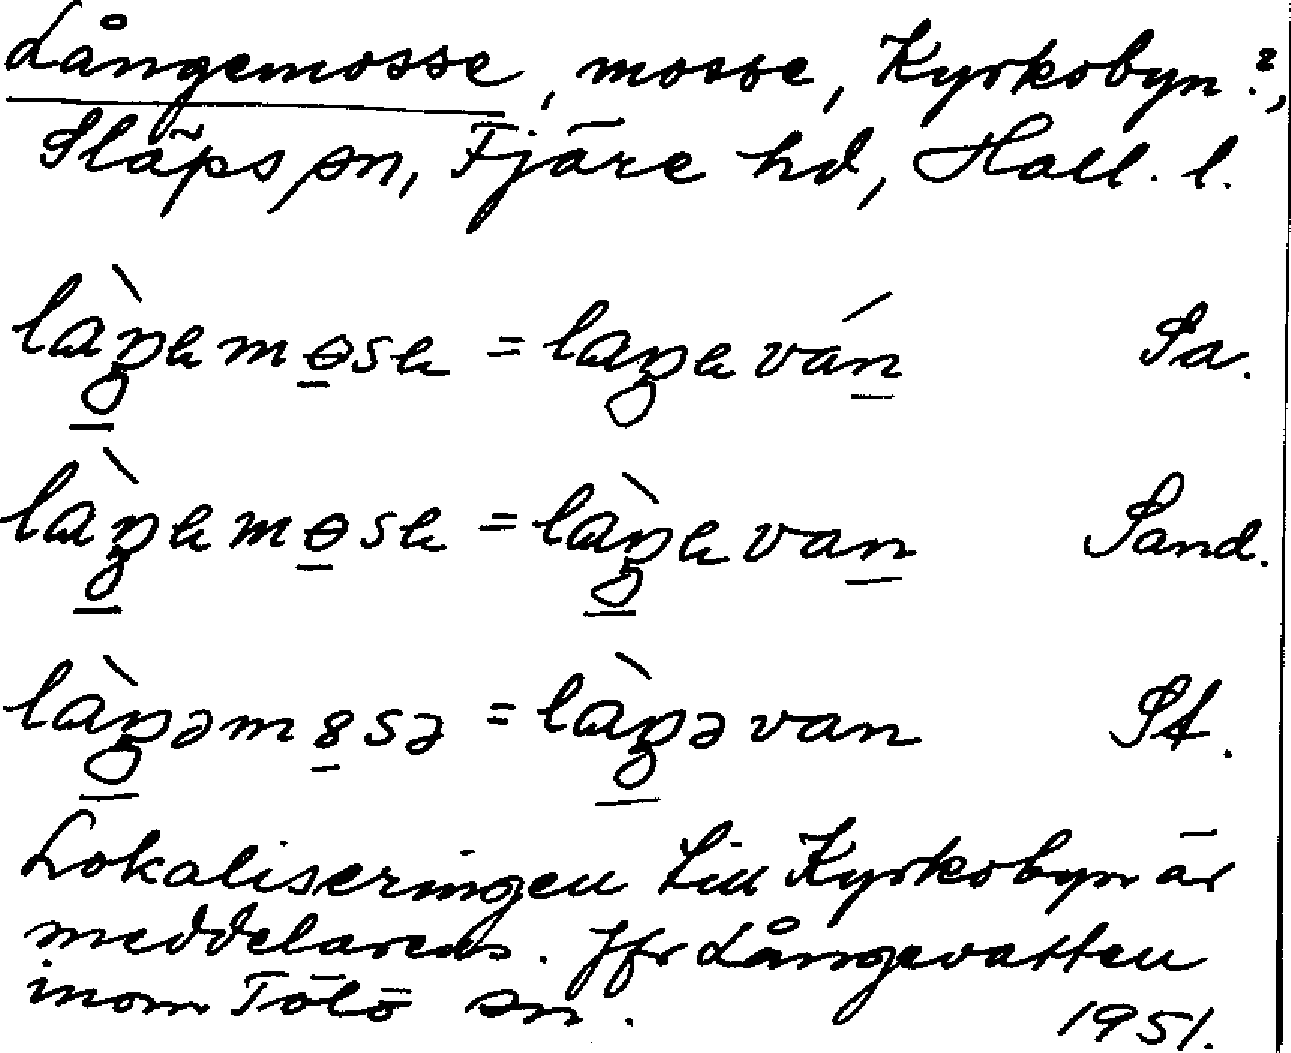 Långemosse, mosse, Kyrkobyn?,
Släps sn, Fjäre hd, Hall. l.
làŋəmɵsə = laŋəván Sa.
làŋəmɵsə = làŋəvan Sand.
làŋəm8sə = làŋəvan St.
Lokaliseringen till Kyrkobyn är
meddelarens. Jfr Långevatten
inom Tölö sn. 1951.